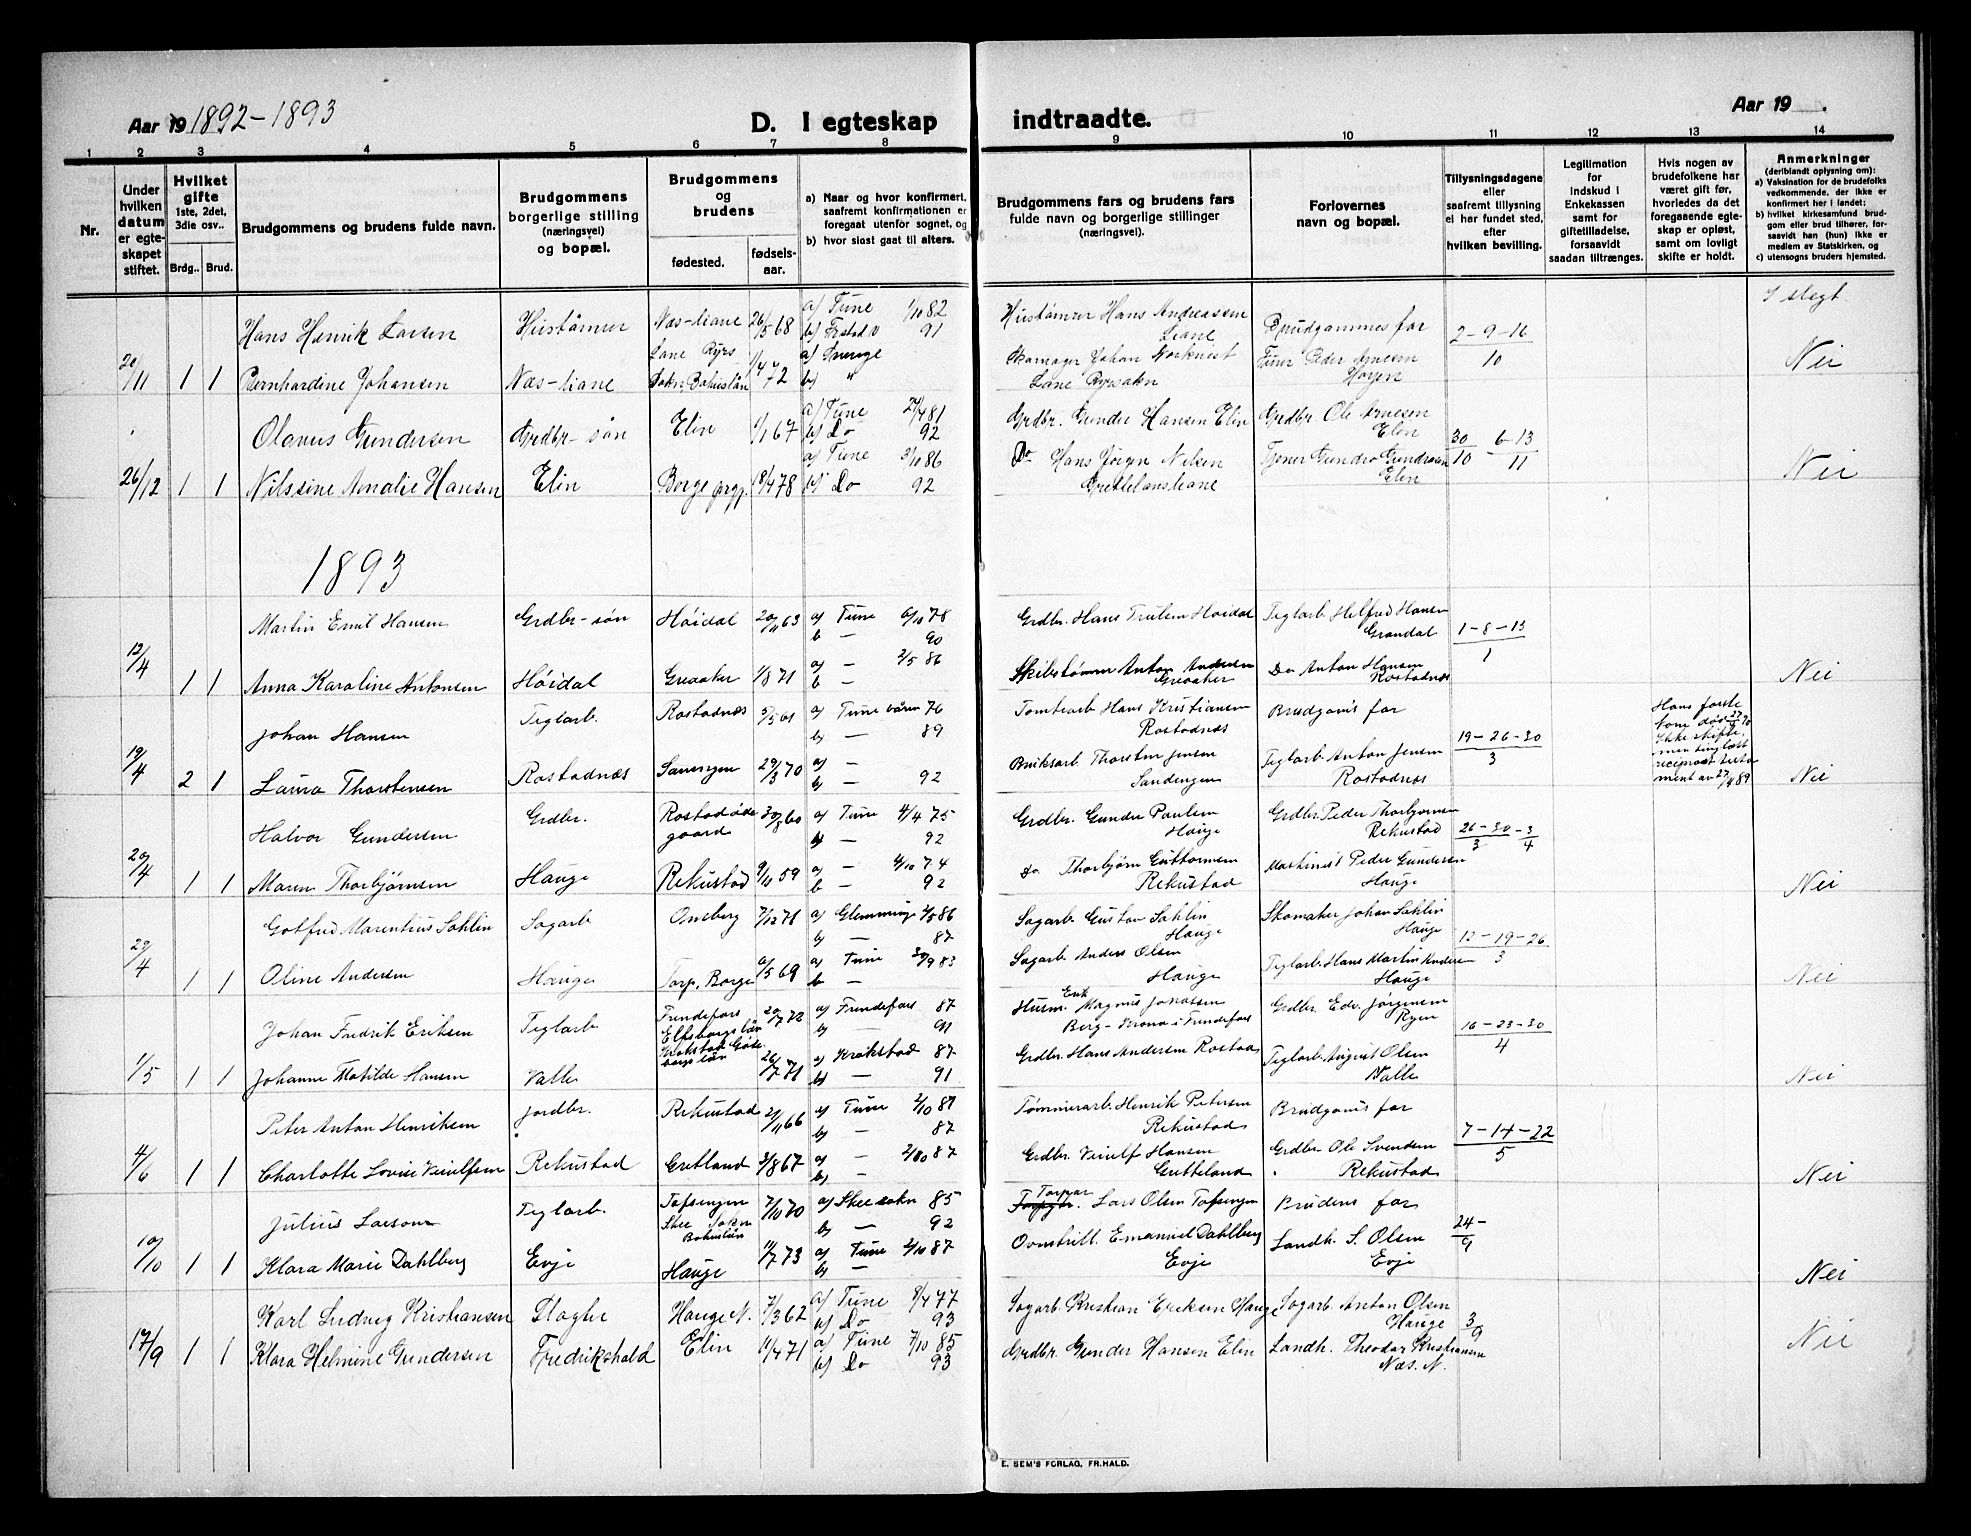 Aar 19 1892-1893
D. I egteskap indtraadte.
Aar 19 .
1 2 3 4 5 6 7 8 9 10 11 12 13 14
Nr.
Under hvilken datum er egte-skapet stiftet.
Hvilket gifte 1ste, 2det, 3die osv..
Brdg.. Brud.
Brudgommens og brudens fulde navn.
Brudgommens borgerlige stilling (næringsvei) og bopæl.
Brudgommens og brudens
fødested. fødsels-aar.
a) Naar og hvor konfirmert, saafremt konfirmationen er foregaat utenfor sognet, og
b) hvor sisst gaat til alters.
Brudgommens fars og brudens fars fulde navn og borgerlige stillinger (næringsvei)
Forlovernes navn og bopæl.
Tillysningsdagene eller saafremt tillysning ei har fundet sted, efter hvilken bevilling.
Legitimation for indskud i Enkekassen samt for giftetilladelse, forsaavidt saadan tiltrænges.
Hvis nogen av brudefolkene har været gift før, hvorledes da det foregaaende egte-skap er opløst, samt om lovligt skifte er holdt.
Anmerkninger (deriblandt oplysning om):
a) Vaksination for de brudefolks vedkommende, der ikke er konfirmert her i landet;
b) hvilket kirkesamfund brud-gom eller brud tilhører, for-saavidt han (hun) ikke er medlem av Statskirken, og
c) utensogns bruders hjemsted.
Hans Henrik Larsen Næs-liane 26/5 68 a) Tune 1/10 82 b) 91 Hans Andreassen Liane Brudgommes far 2-9-16 / 10 I slegt
20/11 1 1 Bernhardine Johansen Næs-liane Bohuslän 1/4 72 a) Sverige b) " Johan Norkvist Peder Arnesen Nei
Olavus Gundersen Grdbr-søn Elin 1/1 67 a) Tune 24/4 81 b) Do 92 Grdbr. Gunder Hansen Elin Grdbr. Ole Arnesen Elin 30/10 - 6-13/11
26/12 1 1 Nilssine Amalie Hansen Elin Borge prgj. 18/4 78 a) Tune 3/10 86 b) Do 92 Do Hans Jörgn Nilsen Tjener Gundro Gundrosen Elin Nei
1893
Martin Emil Hansen Grdbr-søn Høidal 20/11 63 a) Tune 6/10 78 b — 90 Grdbr. Hans Trulsen Høidal Teglarb. Helfred Hansen Grøndal 1-8-13 / 1
13/4 1 1 Anna Karoline Antonsen Høidal Greaaker 1/8 71 a) — 2/5 86 b — Skibstømmer Anton Andersen Greaaker Do Anton Hansen Rostadnæs Nei
Johan Hansen Teglarb. Rostadnæs 5/5 61 a) Tune våren 76 b) — 89 Tomtearb Hans Kristiansen Rostadnæs Brudgoms far 19-26-30 / 3 Hans første
19/4 2 1 Laura Thorstensen Rostadnæs Sanengen 29/3 70 a) — b) — 92 Bruksarb Thorsten Jensen Sandengen Teglarb. Anton Jensen Rostadnæs ikke skifte, men tinglæst reciprost testament av 27/4 89 Nei
Halvor Gundersen Grdbr. Rostadødegaard 30/8 60 a) Tune 4/4 75 b) — 92 Grdbr. Gundro Paulsen Hauge Grdbr. Peder Thorbjørnsen Rekustad 26-30/3 - 3/4
20/4 1 1 Maren Thorbjørnsen Hauge Rekustad 9/10 59 a) — 4/10 74 b — 92 do Thorbjørn Guttormsen Rekustad Maskinist Peder Gundersen Hauge Nei
Gotfred Marentius Sahlin Sagarb Omberg 7/12 71 a) Glemminge 2/5 86 b) — 87 Sagarb. Gustav Sahlin Hauge Skomaker Johan Sahlin Hauge 12-19-26 / 3
29/4 1 1 Oline Andersen Hauge Torp. Borge 9/5 69 a) Tune 30/9 83 b — Sagarb. Anders Olsen Hauge Teglarb. Hans Martin Andersen Hauge Nei
Johan Fredrik Eriksen Teglarb Fundefors Elfsborgs län 20/7 72 a) Fundefors 87 b) — 91 Husm. Erik Magnus Jonassen Berg-Krona i Fundefors Grdbr. Edv. Jørgensen Ryen 16-23-30 / 4
1/5 1 1 Johanne Matilde Hansen Valle Krokstad Gøteborgs län 26/7 71 a) Krokstad 87 b) — 91 Grdbr. Hans Andersen Rostad Teglarb. August Olsen Valle Nei
Peter Anton Henriksen Jordbr. Rekustad 21/11 66 a) Tune 2/10 81 b) — 87 Tømmerarb. Henrik Petersen Rekustad Brudgoms far 7-14-22 / 5
4/6 1 1 Charlotte Lovise Kinulfsen Rekustad Gretland 3/8 67 a) — 2/10 87 b) — Grdbr Kinulf Hansen Gretteland Grdbr. Ole Svendsen Rekustad Nei
Julius Larsen Teglarb. Tofsengen Skee Sokn Bohuslän 7/10 70 a) Skee sokn 85 b) — 92 Torpar Lars Olsen Tofsengen Brudens far 24- / 9
10/10 1 1 Klara Marie Dahlberg Evje Hauge 11/7 73 a) Tune 2/10 87 b) — Emanuel Dahlberg Evje Landh. S. Olsen Evje Nei
Karl Ludvig Kristiansen Hauge N. 7/3 62 a) Tune 8/4 77 b) Do 93 Sagarb. Kristian Eriksen Hauge Sagarb. Anton Olsen Hauge 3/9
17/9 1 1 Klara Helmine Gundersen Fredrikshald Elin 11/4 71 a) Tune 7/10 85 b) Do 93 Grdbr. Gunder Hansen Elin Landh. Theodor Kristiansen Næs. N. Nei
E. SEM'S FORLAG, FR.HALD.